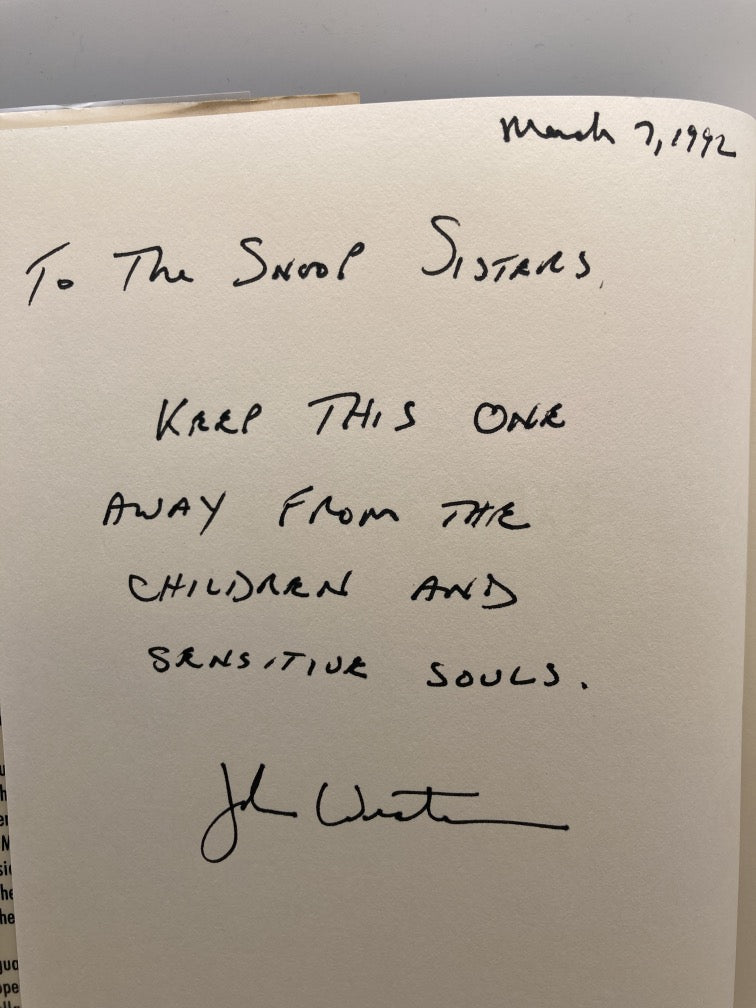 March 7, 1992
To The Snoop Sisters,
KEEP THIS ONE
AWAY FROM THE
CHILDREN AND
SENSITIVE SOULS.
John